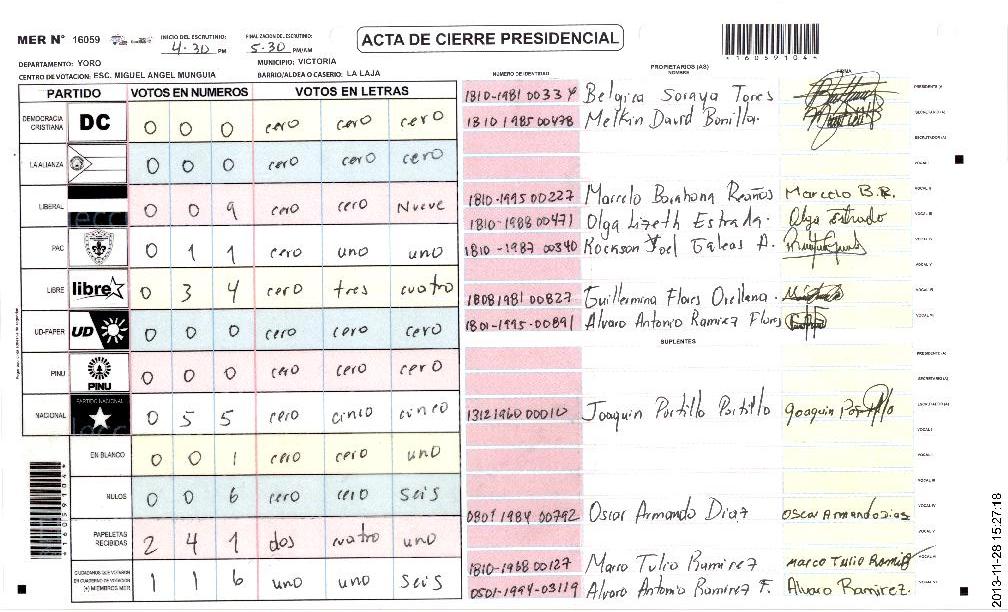 MER N° 16059
INICIO DEL ESCRUTINIO: 4:30 PM
FINALIZACION DEL ESCRUTINIO: 5:30 PM/AM
ACTA DE CIERRE PRESIDENCIAL
*16059104*
DEPARTAMENTO: YORO
MUNICIPIO: VICTORIA
CENTRO DE VOTACION: ESC. MIGUEL ANGEL MUNGUIA
BARRIO/ALDEA O CASERIO: LA LAJA
PARTIDO VOTOS EN NUMEROS VOTOS EN LETRAS
DEMOCRACIA CRISTIANA DC 0 0 0 cero cero cero
LA ALIANZA 0 0 0 cero cero cero
LIBERAL 0 0 9 cero cero Nueve
PAC 0 1 1 cero uno uno
LIBRE libre 0 3 4 cero tres cuatro
UD-FAPER UD 0 0 0 cero cero cero
PINU PINU 0 0 0 cero cero cero
NACIONAL PARTIDO NACIONAL 0 5 5 cero cinco cinco
EN BLANCO 0 0 1 cero cero uno
NULOS 0 0 6 cero cero seis
PAPELETAS RECIBIDAS 2 4 1 dos cuatro uno
CIUDADANOS QUE VOTARON EN CUADERNO DE VOTACION (+) MIEMBROS MER 1 1 6 uno uno seis
*16059104*
NUMERO DE IDENTIDAD
PROPIETARIOS (AS)
NOMBRE
FIRMA
1810-1981 00334 Belgica Soraya Torres PRESIDENTE (A)
1810 1985 00478 Melkin David Bonilla. SECRETARIO (A)
ESCRUTADOR (A)
VOCAL I
1810-1995 00227 Marcelo Barahona Reaños Marcelo B.R. VOCAL II
1810-1988 00471 Olga Lizeth Estrada. Olga Estrada VOCAL III
1810-1987 00340 Rockson Joel Galeas A. VOCAL IV
VOCAL V
1808 1981 00827 Guillermina Flores Orellana. VOCAL VI
1801-1995-00891 Alvaro Antonio Ramirez Flores VOCAL VII
SUPLENTES
PRESIDENTE (A)
SECRETARIO (A)
1312 1960 00010 Joaquin Portillo Portillo Joaquin Portillo ESCRUTADOR (A)
VOCAL I
VOCAL II
VOCAL III
0801 1984 00792 Oscar Armando Diaz Oscar Armando Dias VOCAL IV
VOCAL V
1810-1968 00127 Marco Tulio Ramirez Marco Tulio Ramirez VOCAL VI
0501-1994-03119 Alvaro Antonio Ramirez F. Alvaro Ramirez. VOCAL VII
2013-11-28 15:27:18